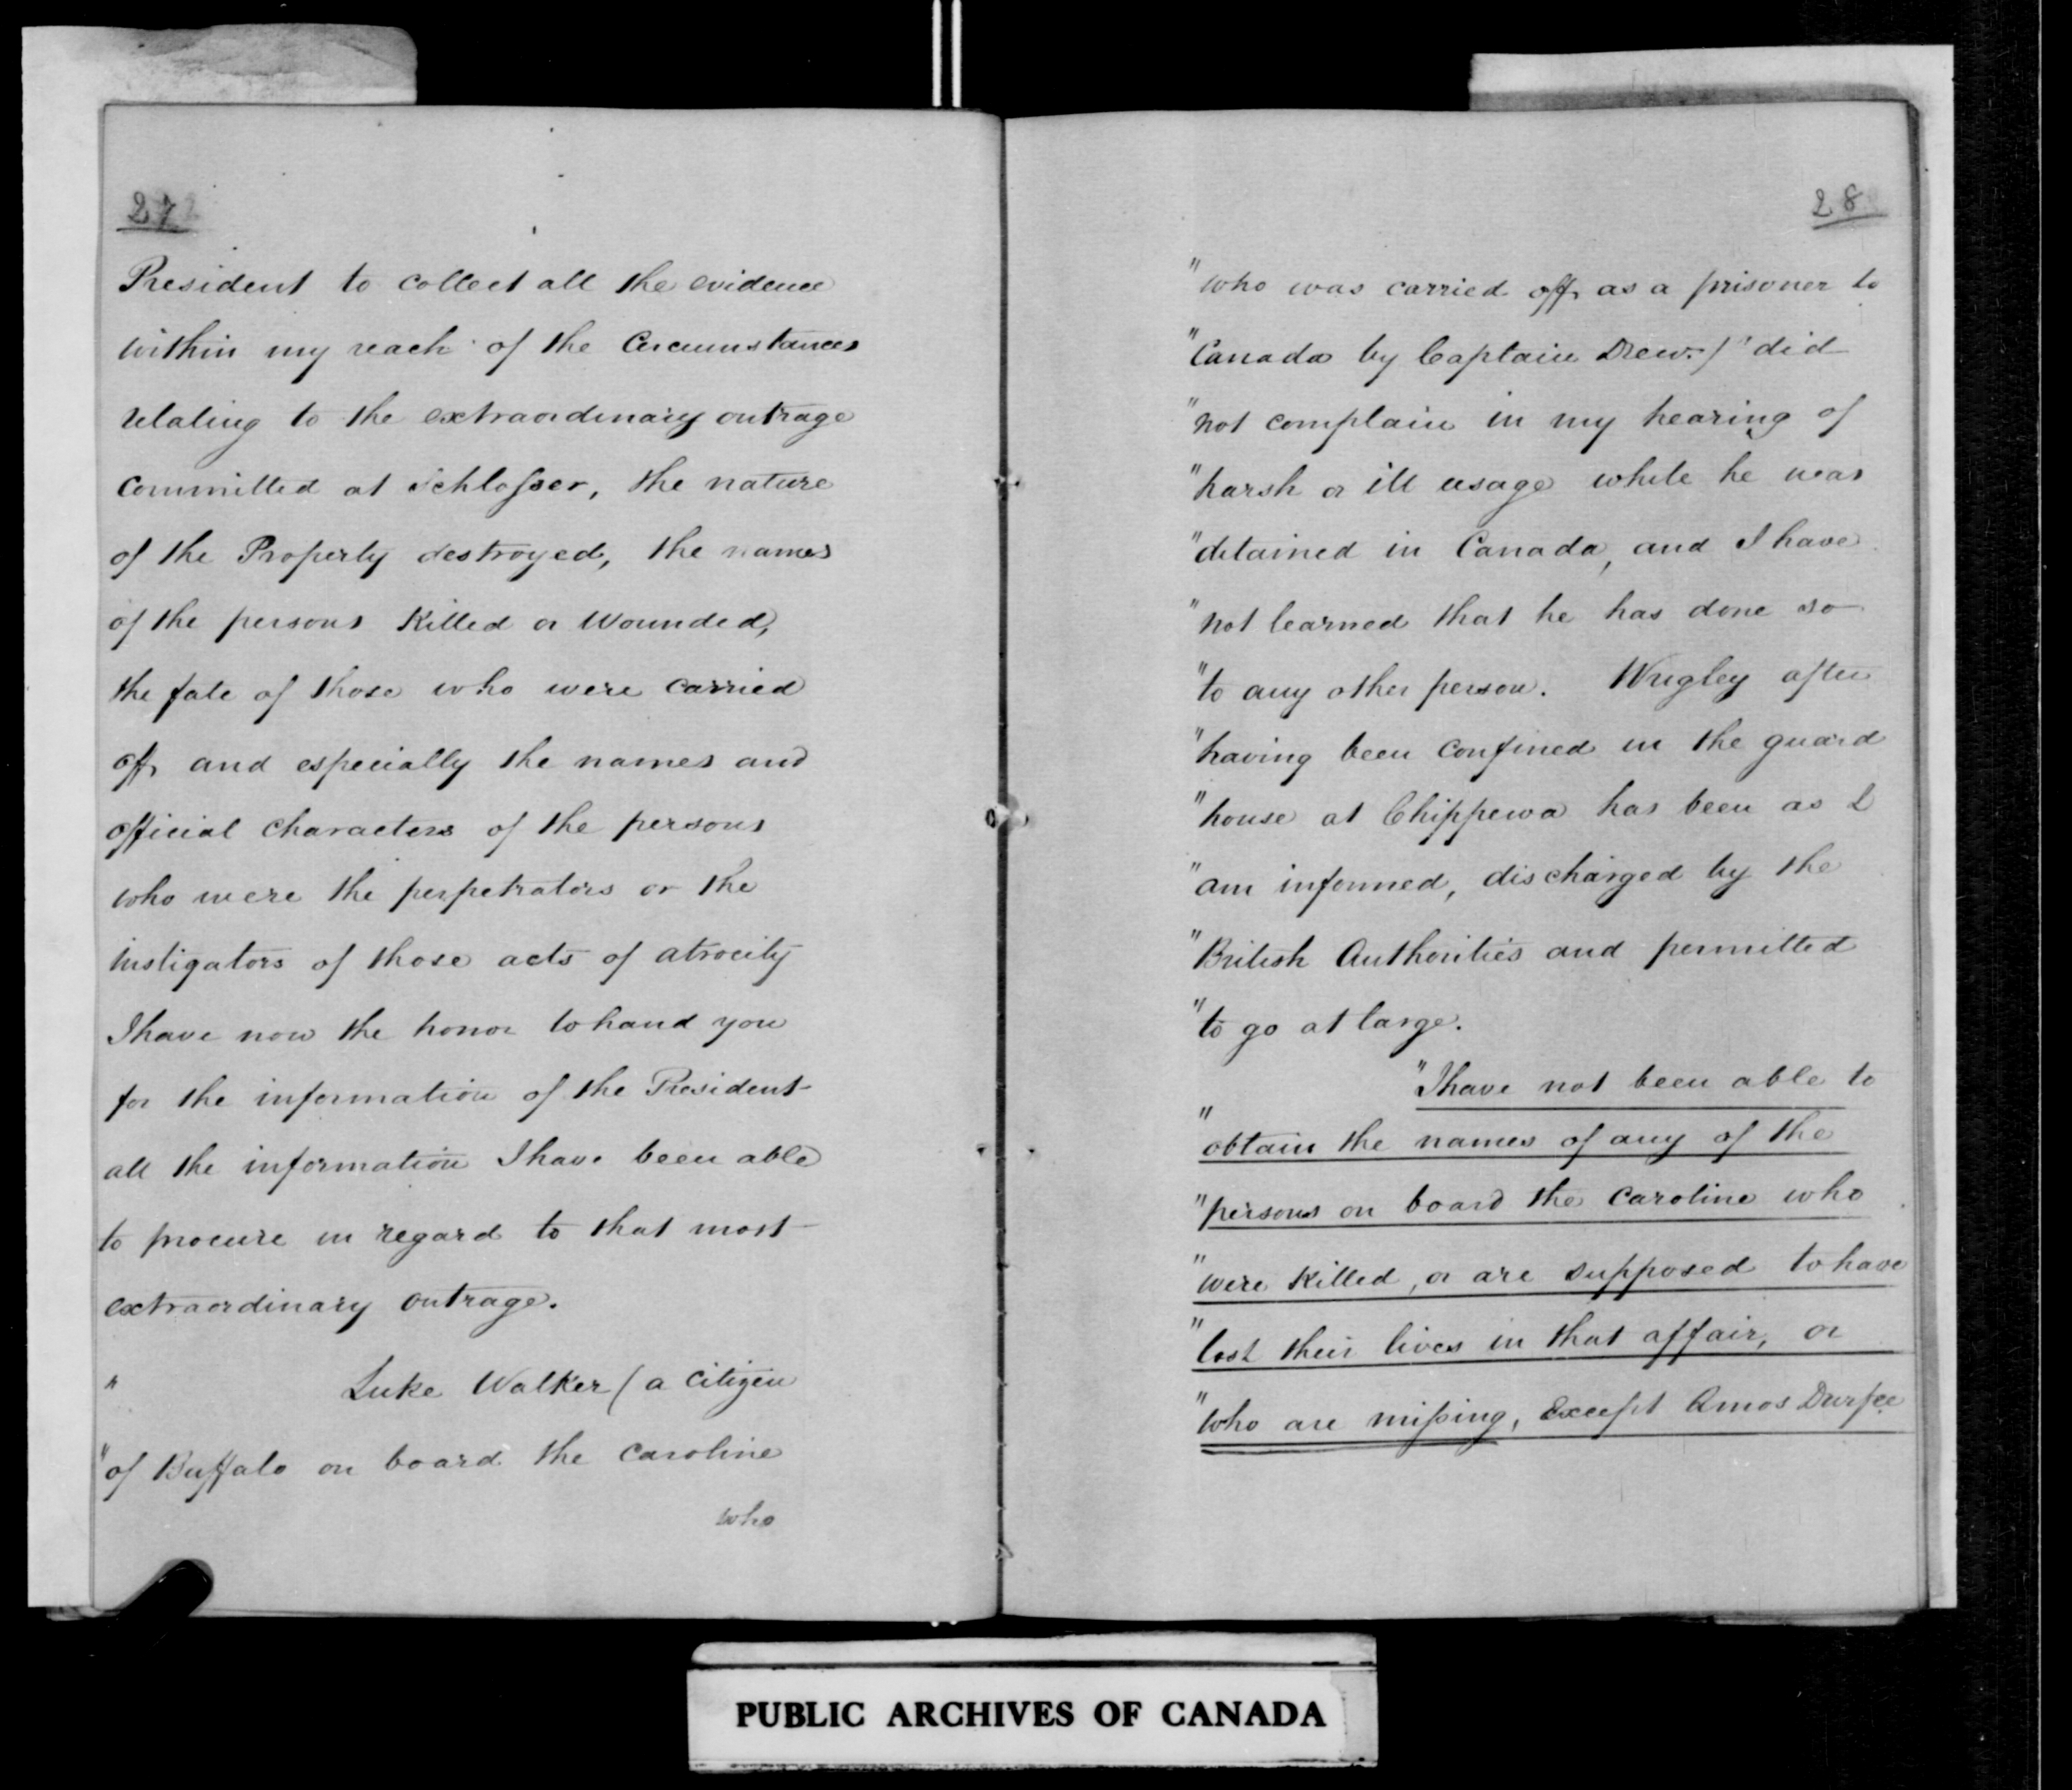 27
President to collect all the evidence
within my reach of the Circumstances
relating to the extraordinary outrage
committed at Schlosser, the nature
of the Property destroyed, the names
of the persons Killed or Wounded,
the fate of those who were carried
off, and especially the names and
official characters of the persons
who were the perpetrators or the
instigators of those acts of atrocity
I have now the honor to hand you
for the information of the President
all the information I have been able
to procure in regard to that most
extraordinary outrage.
" Luke Walker (a Citizen
"of Buffalo on board the Caroline
who
28
"who was carried off, as a prisoner to
"Canada by Captain Drew.)" did
"not complain in my hearing of
"harsh or ill usage while he was
"detained in Canada, and I have
"not learned that he has done so
"to any other person. Wrigley after
"having been confined in the guard
"house at Chippewa has been as I
"am informed, discharged by the
"British Authorities and permitted
"to go at large.
"I have not been able to
"obtain the names of any of the
"persons on board the Caroline who
"were Killed, or are supposed to have
"lost their lives in that affair, or
"who are missing, except Amos Durfee
PUBLIC ARCHIVES OF CANADA